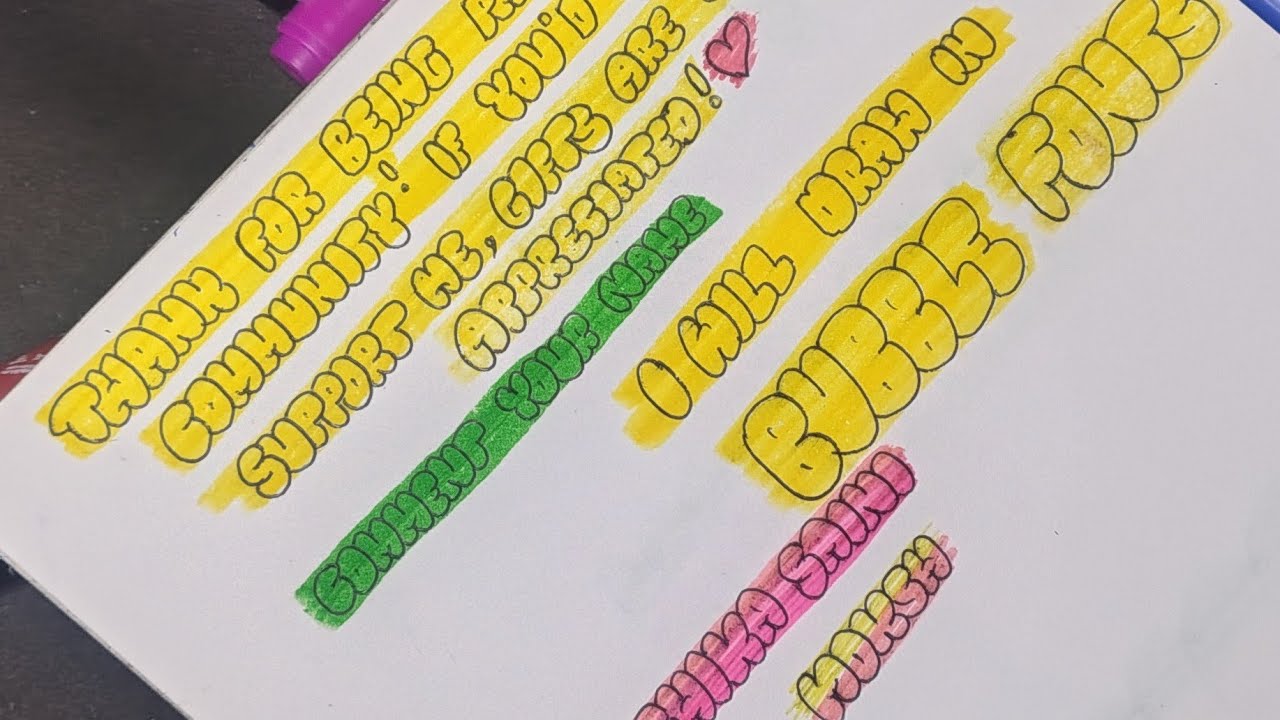 THANK FOR BEING
COMMUNITY! IF YOU'D
SUPPORT ME, GIFTS ARE
APPRECIATED!
COMMENT YOUR NAME
I WILL DRAW IN
BUBBLE FONTS
SAINI
MOKSH